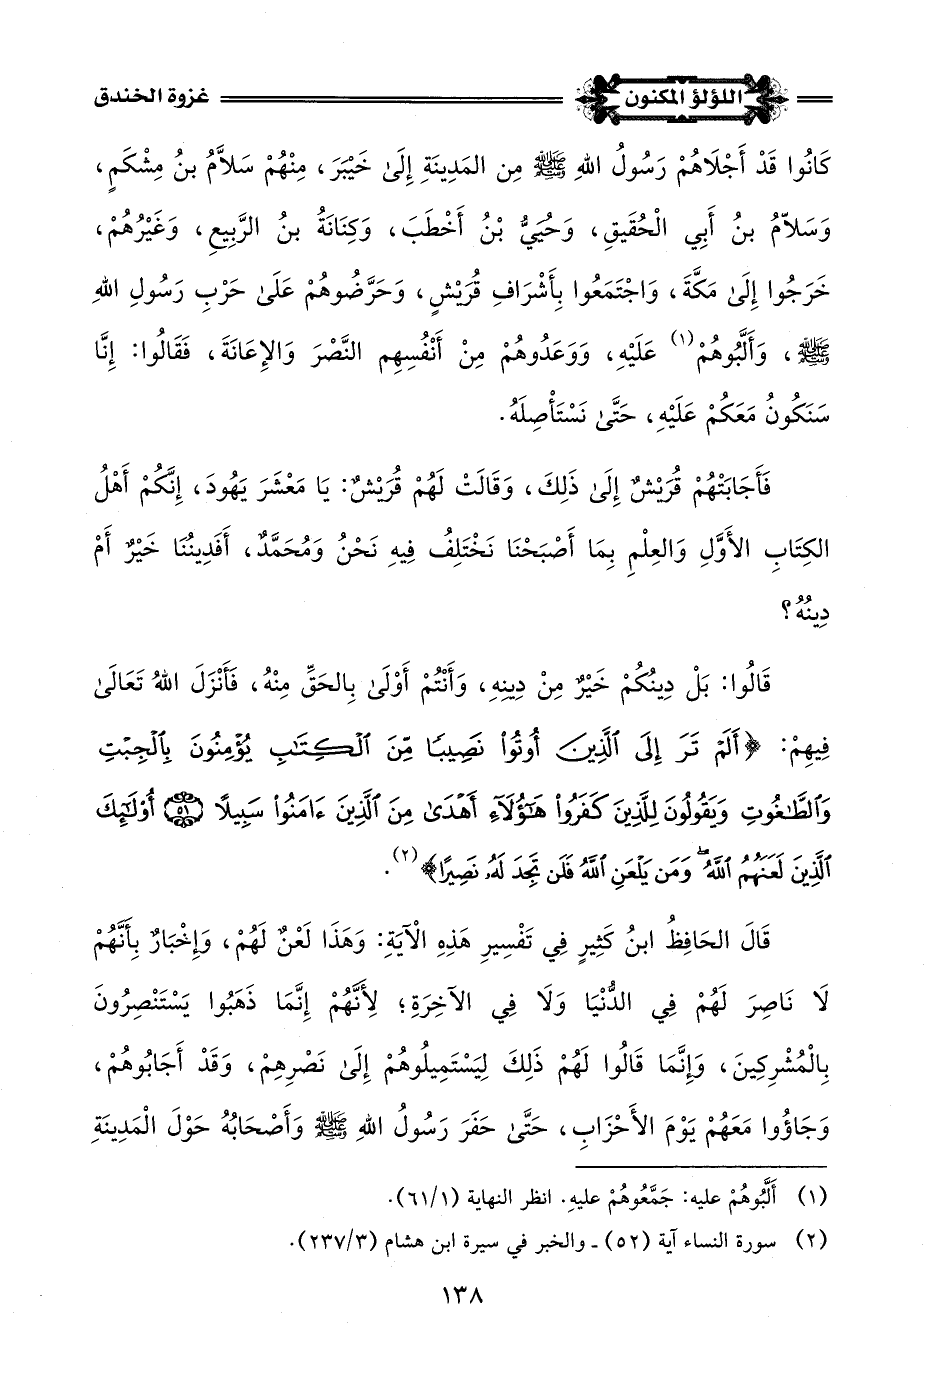 اللؤلؤ المكنون غزوة الخندق
كَانُوا قَدْ أَجْلَاهُمْ رَسُولُ اللهِ ﷺ مِن المَدِينَةِ إِلَىٰ خَيْبَرَ، مِنْهُمْ سَلاَّمُ بنُ مِشْكَمٍ،
وَسَلاَّمُ بنُ أَبِي الْحُقَيقِ، وَحُيَيُّ بْنُ أَخْطَبَ، وَكِنَانَةُ بنُ الرَّبِيعِ، وَغَيْرُهُمْ،
خَرَجُوا إِلَىٰ مَكَّةَ، وَاجْتَمَعُوا بِأَشْرَافِ قُرَيْشٍ، وَحَرَّضُوهُمْ عَلَىٰ حَرْبِ رَسُولِ اللهِ
ﷺ، وَأَلَّبُوهُمْ(١) عَلَيْهِ، وَوَعَدُوهُمْ مِنْ أَنْفُسِهِم النَّصْرَ وَالإِعَانَةَ، فَقَالُوا: إِنَّا
سَنَكُونُ مَعَكُمْ عَلَيْهِ، حَتَّىٰ نَسْتَأْصِلَهُ.
فَأَجَابَتْهُمْ قُرَيْشٌ إِلَىٰ ذَلِكَ، وَقَالَتْ لَهُمْ قُرَيْشٌ: يَا مَعْشَرَ يَهُودَ، إِنَّكُمْ أَهْلُ
الكِتَابِ الأَوَّلِ وَالعِلْمِ بِمَا أَصْبَحْنَا نَخْتَلِفُ فِيهِ نَحْنُ وَمُحَمَّدٌ، أَفَدِينُنَا خَيْرٌ أَمْ
دِينُهُ؟
قَالُوا: بَلْ دِينُكُمْ خَيْرٌ مِنْ دِينِهِ، وَأَنْتُمْ أَوْلَىٰ بِالحَقِّ مِنْهُ، فَأَنْزَلَ اللهُ تَعَالَىٰ
فِيهِمْ: ﴿أَلَمْ تَرَ إِلَى ٱلَّذِينَ أُوتُوا۟ نَصِيبًا مِّنَ ٱلْكِتَٰبِ يُؤْمِنُونَ بِٱلْجِبْتِ
وَٱلطَّٰغُوتِ وَيَقُولُونَ لِلَّذِينَ كَفَرُوا۟ هَٰٓؤُلَآءِ أَهْدَىٰ مِنَ ٱلَّذِينَ ءَامَنُوا۟ سَبِيلًا ٥١ أُو۟لَٰٓئِكَ
ٱلَّذِينَ لَعَنَهُمُ ٱللَّهُ ۖ وَمَن يَلْعَنِ ٱللَّهُ فَلَن تَجِدَ لَهُۥ نَصِيرًا﴾(٢).
قَالَ الحَافِظُ ابنُ كَثِيرٍ فِي تَفْسِيرِ هَذِهِ الْآيَةِ: وَهَذَا لَعْنٌ لَهُمْ، وَإِخْبَارٌ بِأَنَّهُمْ
لَا نَاصِرَ لَهُمْ فِي الدُّنْيَا وَلَا فِي الآخِرَةِ؛ لِأَنَّهُمْ إِنَّمَا ذَهَبُوا يَسْتَنْصِرُونَ
بِالْمُشْرِكِينَ، وَإِنَّمَا قَالُوا لَهُمْ ذَلِكَ لِيَسْتَمِيلُوهُمْ إِلَىٰ نَصْرِهِمْ، وَقَدْ أَجَابُوهُمْ،
وَجَاؤُوا مَعَهُمْ يَوْمَ الأَحْزَابِ، حَتَّىٰ حَفَرَ رَسُولُ اللهِ ﷺ وَأَصْحَابُهُ حَوْلَ الْمَدِينَةِ
(١) أَلَّبُوهُمْ عليه: جَمَّعُوهُمْ عليهِ. انظر النهاية (٦١/١).
(٢) سورة النساء آية (٥٢) ـ والخبر في سيرة ابن هشام (٢٣٧/٣).
١٣٨